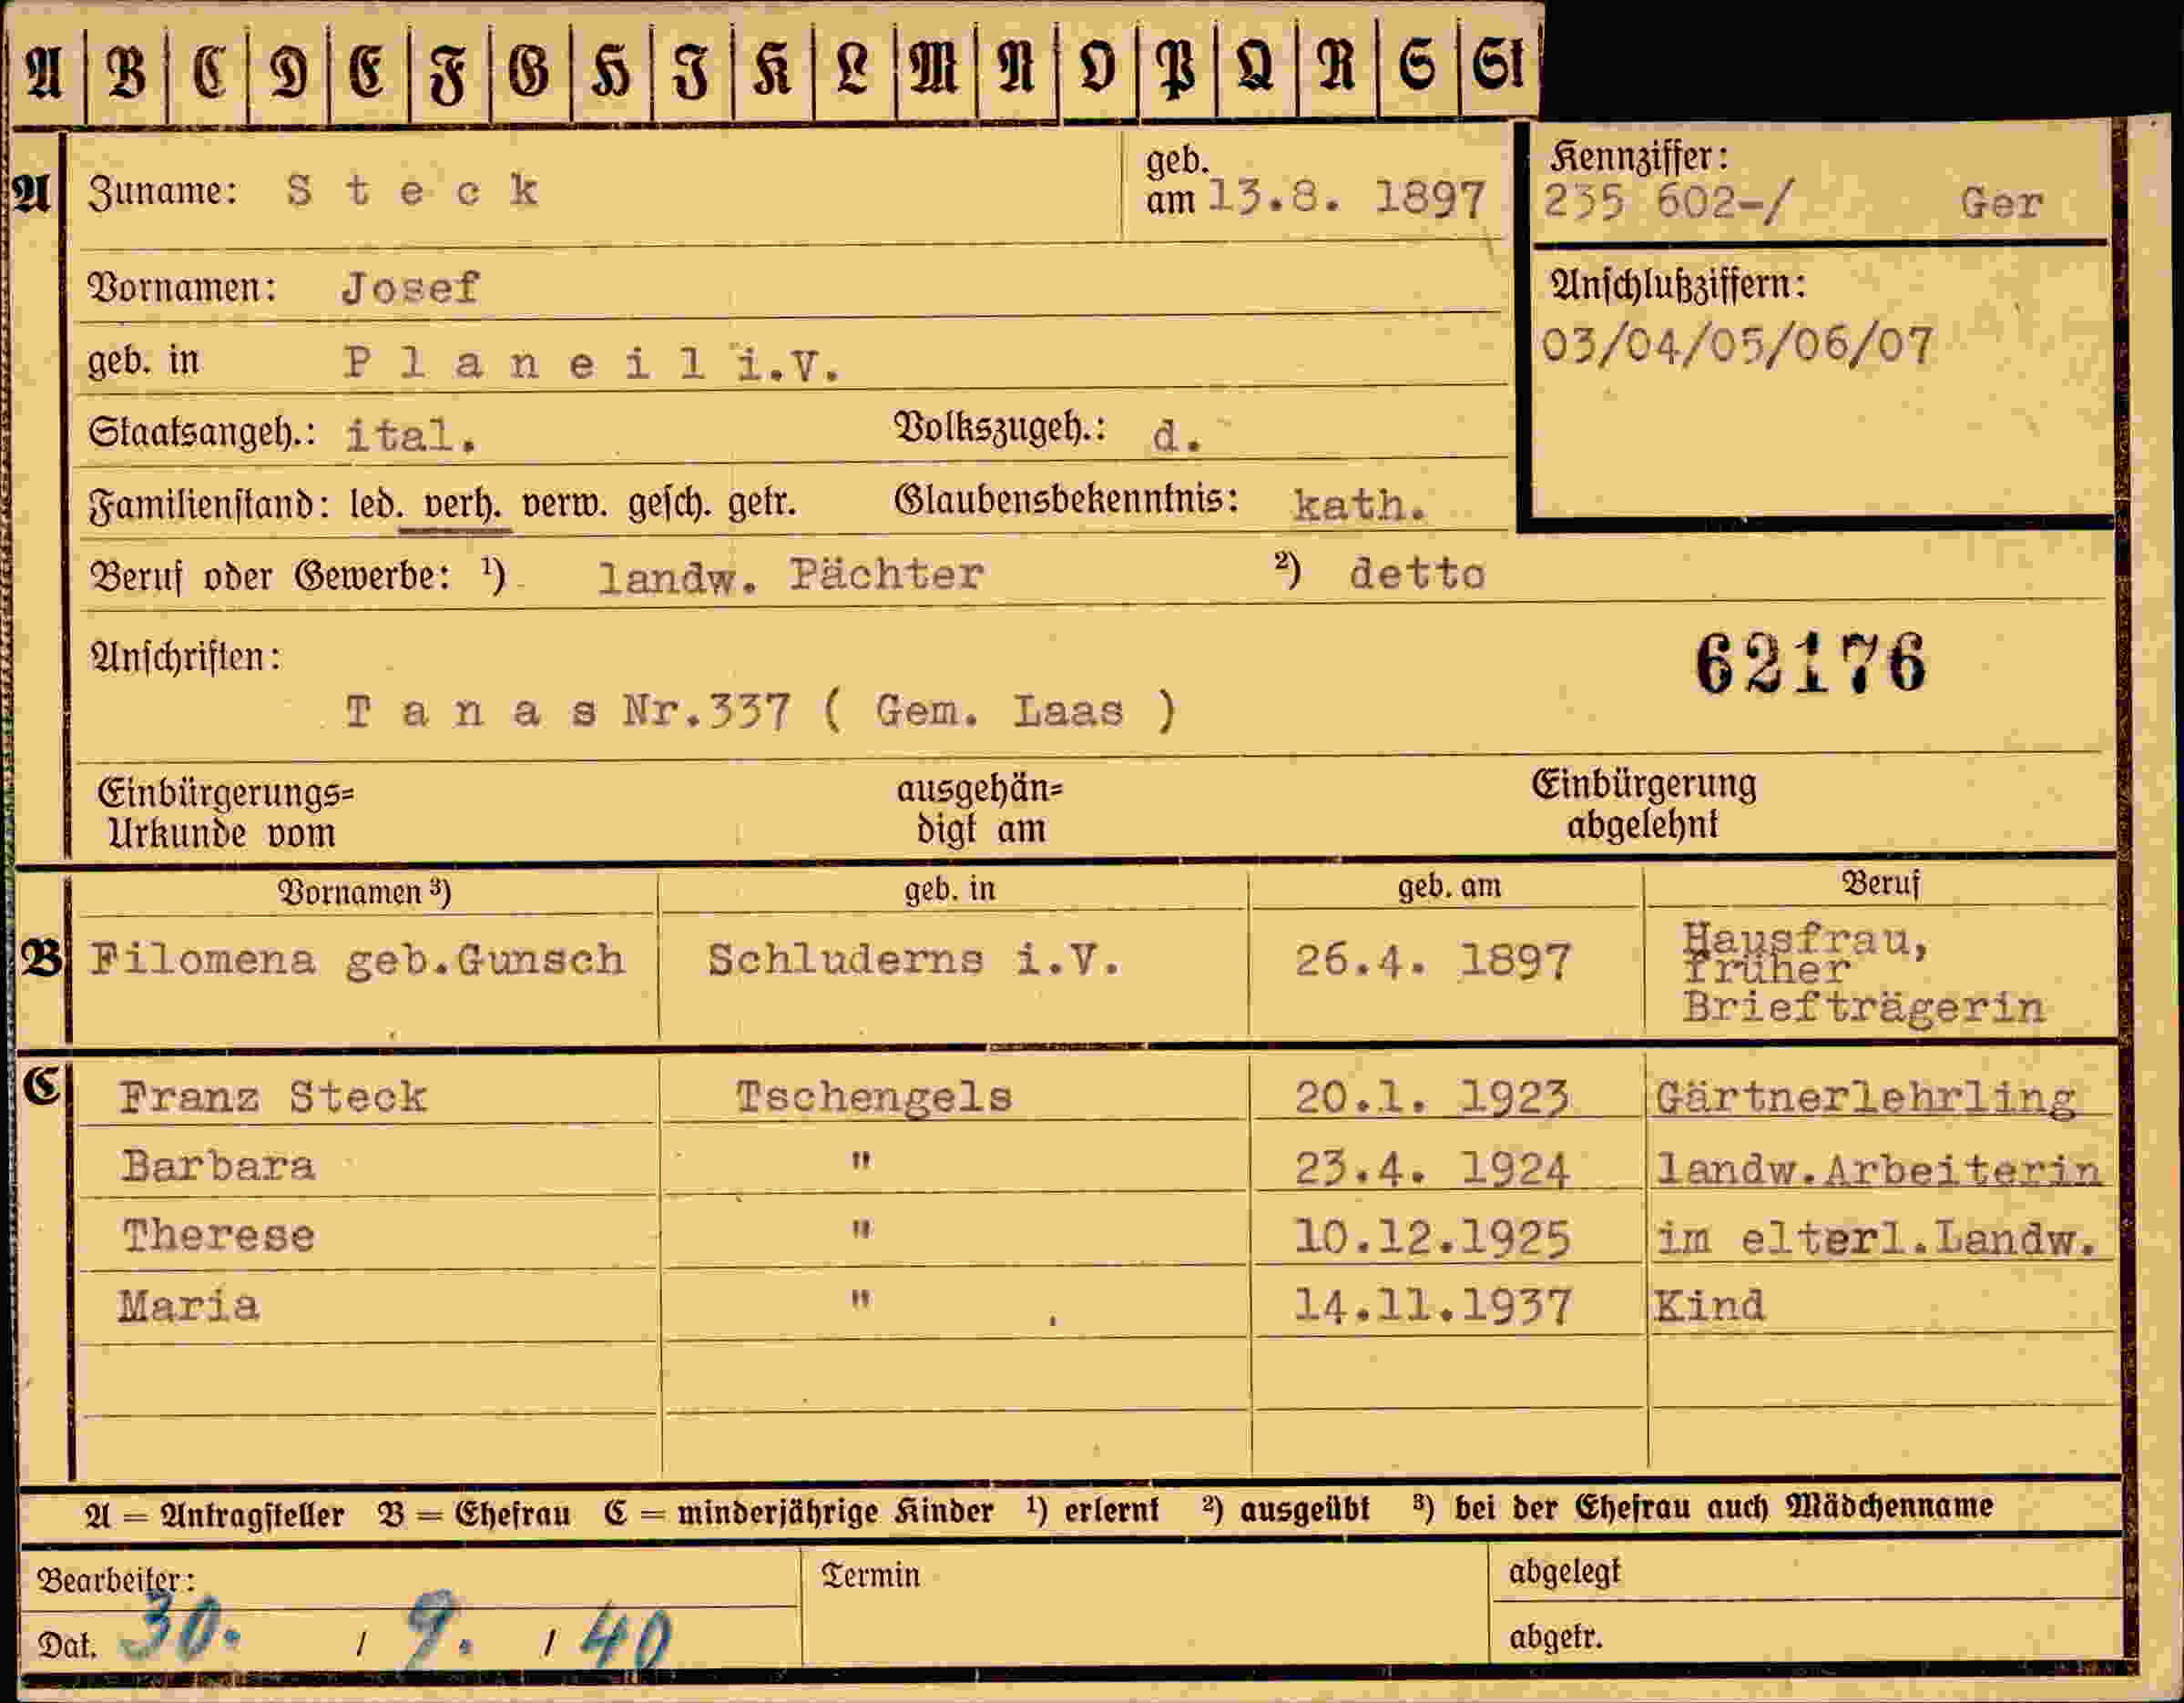 A B C D E F G H J K L M N O P Q R S St
A Zuname: S t e c k geb. am 13.8. 1897
Kennziffer:
235 602-/ Ger
Vornamen: Josef
Anschlußziffern:
03/04/05/06/07
geb. in P l a n e i l i.V.
Staatsangeh.: ital. Volkszugeh.: d.
Familienstand: led. verh. verw. gesch. getr. Glaubensbekenntnis: kath.
Beruf oder Gewerbe: ¹) landw. Pächter ²) detto
Anschriften:
62176
T a n a s Nr.337 ( Gem. Laas )
Einbürgerungs= ausgehän= Einbürgerung
Urkunde vom digt am abgelehnt
Vornamen ³) geb. in geb. am Beruf
B Filomena geb.Gunsch Schluderns i.V. 26.4. 1897 Hausfrau,
früher
Briefträgerin
C Franz Steck Tschengels 20.1. 1923 Gärtnerlehrling
Barbara " 23.4. 1924 landw.Arbeiterin
Therese " 10.12.1925 im elterl.Landw.
Maria " 14.11.1937 Kind
A = Antragsteller B = Ehefrau C = minderjährige Kinder ¹) erlernt ²) ausgeübt ³) bei der Ehefrau auch Mädchenname
Bearbeiter: Termin abgelegt
Dat. 30. / 9. / 40 abgetr.